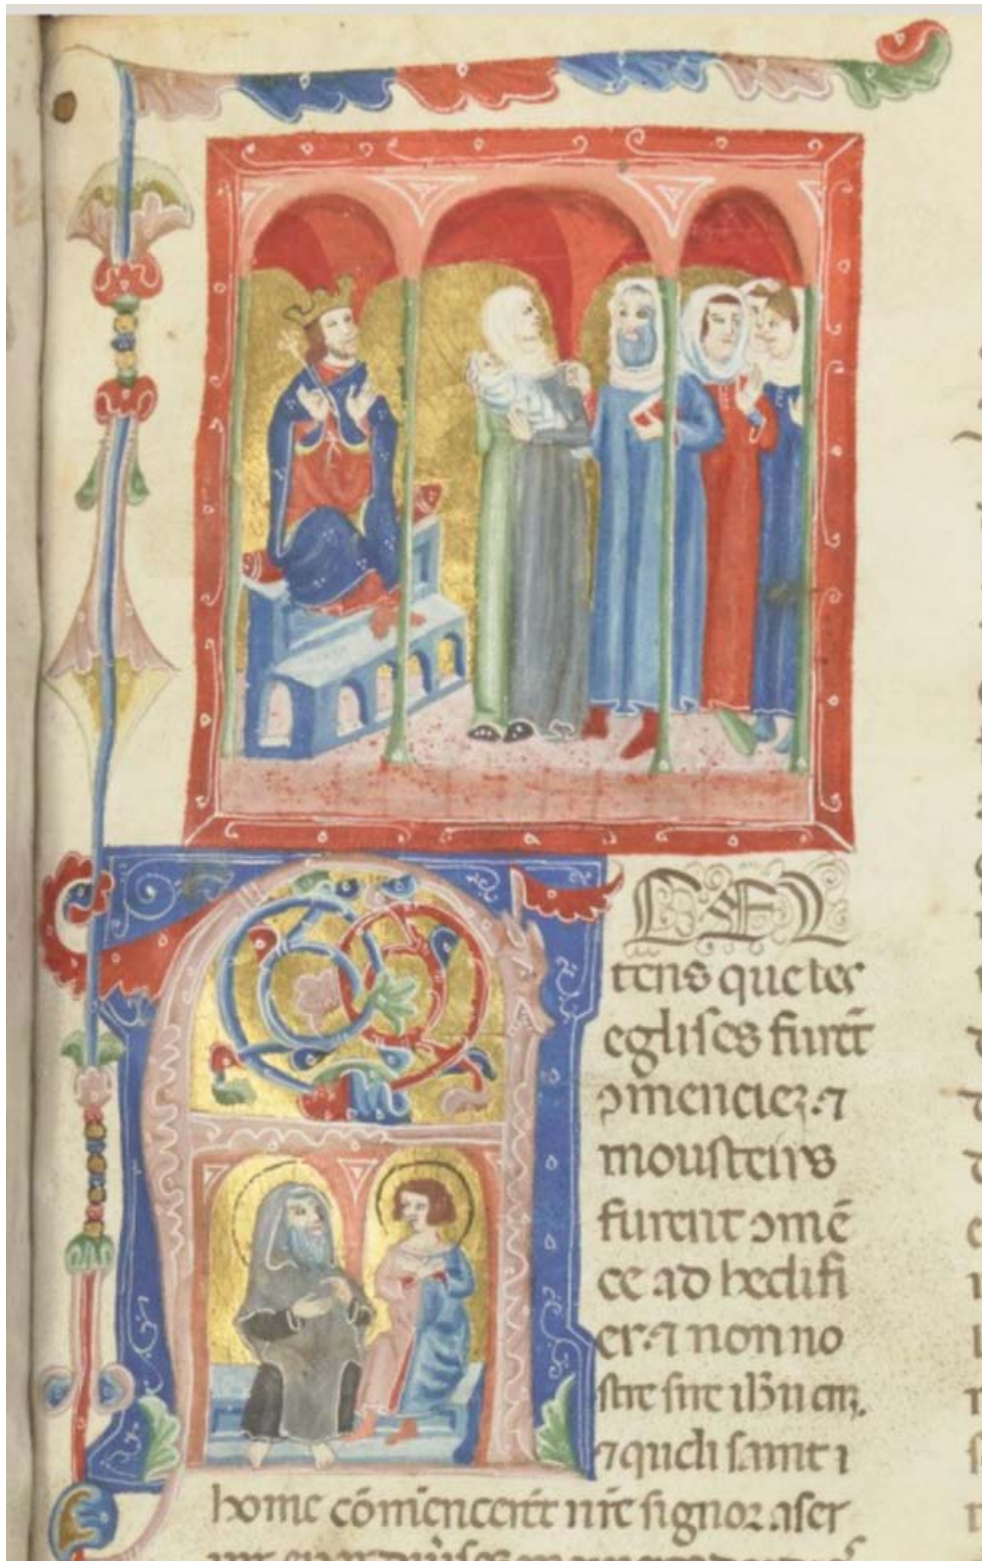 EL
tens que les
eglises furēt
ɔmenciez. ⁊
mousteirs
furent ɔmē
ce ad hedifi
er. ⁊ non no
stre sire
⁊ queli saint i
home cōmencerēt nr̄e signor aser